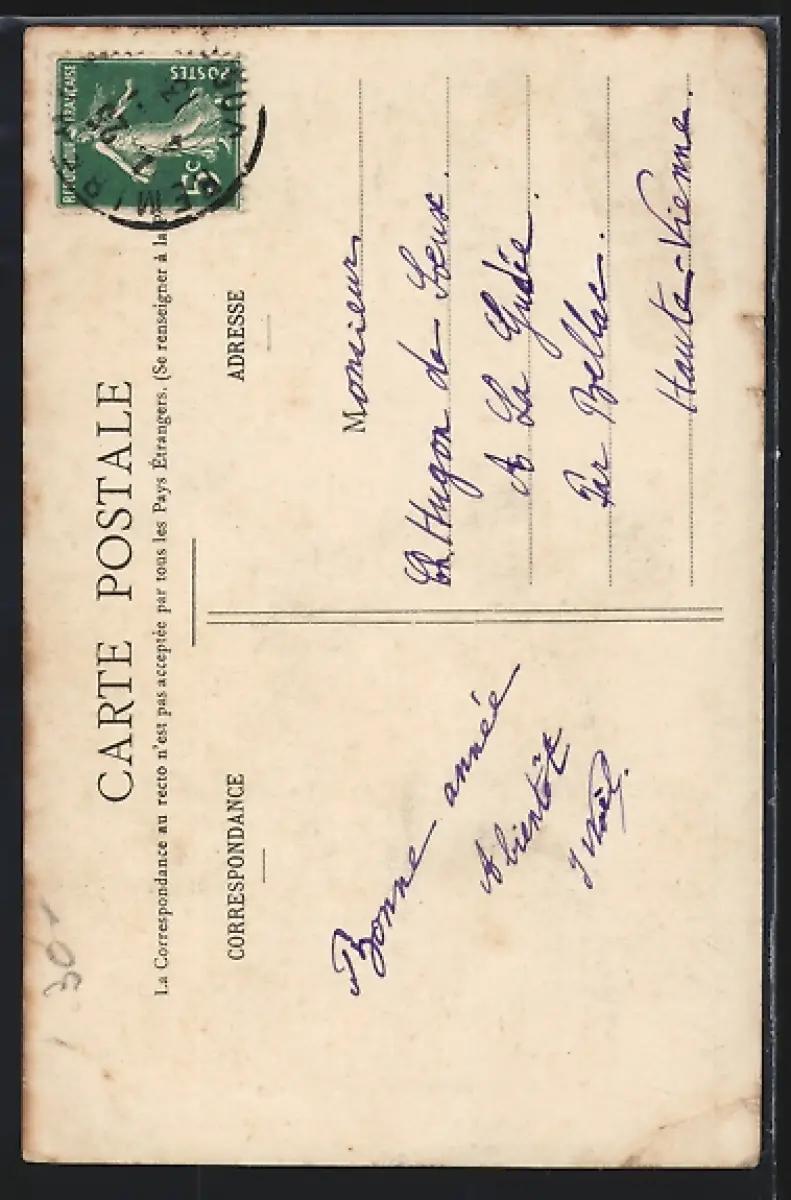 CARTE POSTALE
La Correspondance au recto n'est pas acceptée par tous les Pays Étrangers. (Se renseigner à la
REPUBLIQUE FRANÇAISE
POSTES
5c
CORRESPONDANCE
Bonne année
A bientôt
J Noël.
ADRESSE
Monsieur
Ch. Hugon de
A La
Par Bellac.
Haute-Vienne.
30